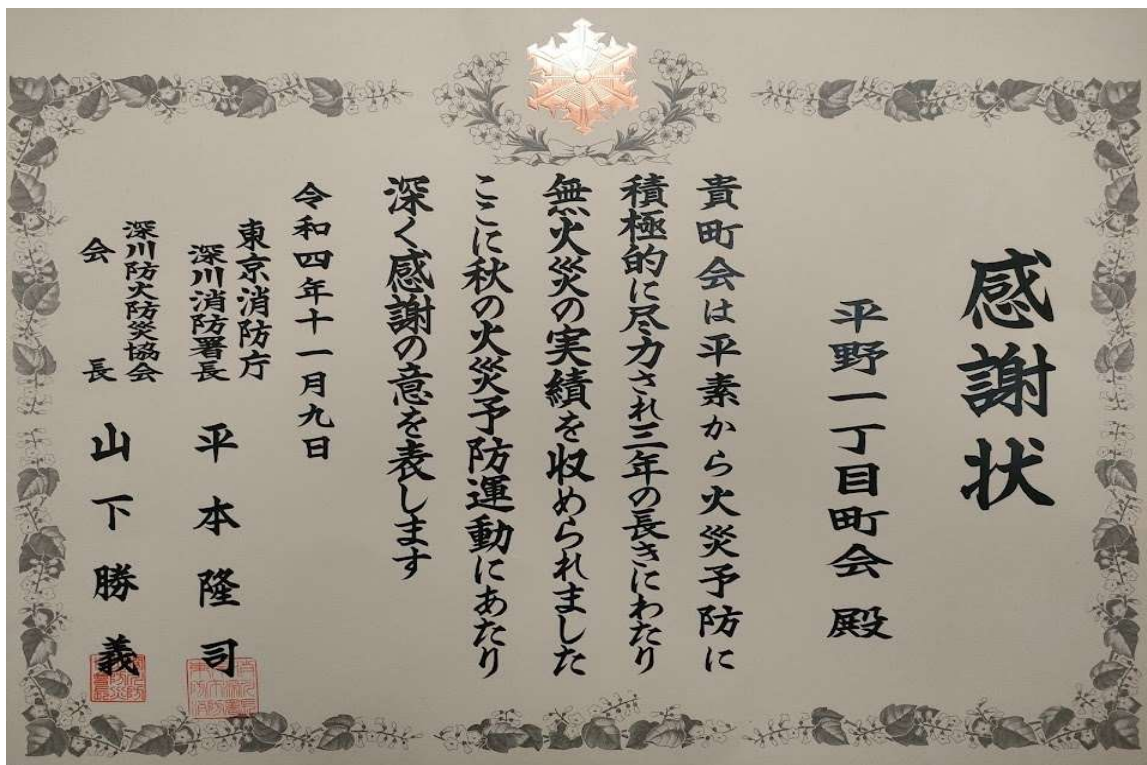 感謝状
平野一丁目町会 殿
貴町会は平素から火災予防に
積極的に尽力され三年の長きにわたり
無火災の実績を収められました
ここに秋の火災予防運動にあたり
深く感謝の意を表します
令和四年十一月九日
東京消防庁
深川消防署長 平本隆司
深川防火防災協会
会長 山下勝義